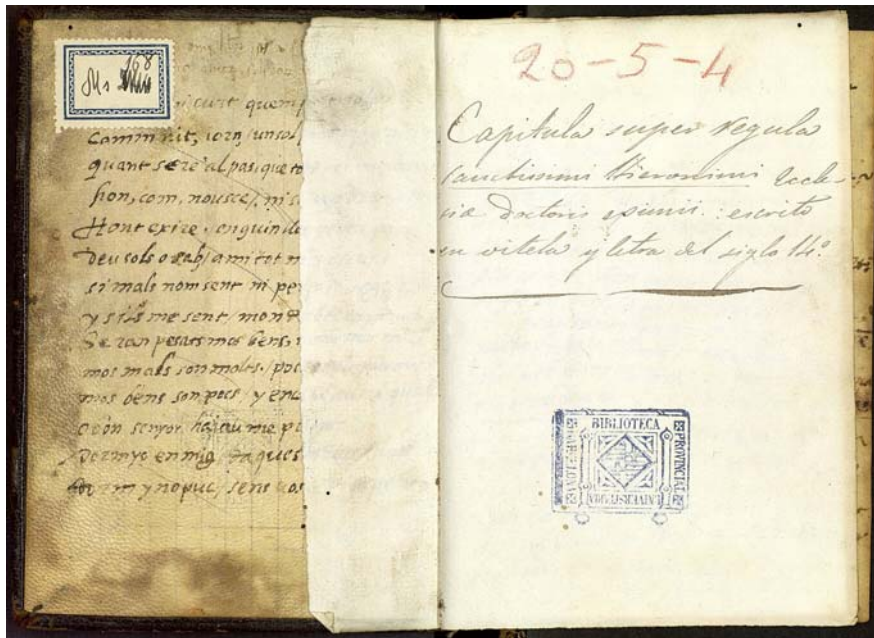 168
Ms
curt quem
Comm nit, iorn, un sol
quant sere al pas, que to
sion, com, nousce, ni s
Hont exire, en quin lle
Deu sols o sab, ami tot m
si mals nom sent ni pe
y si ls me sent, mon
Seran pesats mos bens,
mos mals son molts, poc
mos bens son pocs, y enc
o bon senyor hajau me p
Dormyr enmig, daques
ynopuc, sens vos
20-5-4
Capitula super regula
sanctissimi Hieronimi Eccle-
siæ doctoris eximii: escrito
en vitela y letra del siglo 14º
BIBLIOTECA
PROVINCIAL
UNIVERSITARIA
BARCELONA